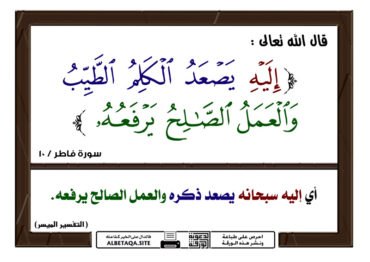 قال الله تعالى :
﴿ إِلَيْهِ يَصْعَدُ ٱلْكَلِمُ ٱلطَّيِّبُ
وَٱلْعَمَلُ ٱلصَّـٰلِحُ يَرْفَعُهُۥ ﴾
سورة فاطر / ١٠
أي إليه سبحانه يصعد ذكره والعمل الصالح يرفعه.
( التفسير الميسر )
احرص على طباعة
ونشر هذه الورقة
ALBETAQA.SITE